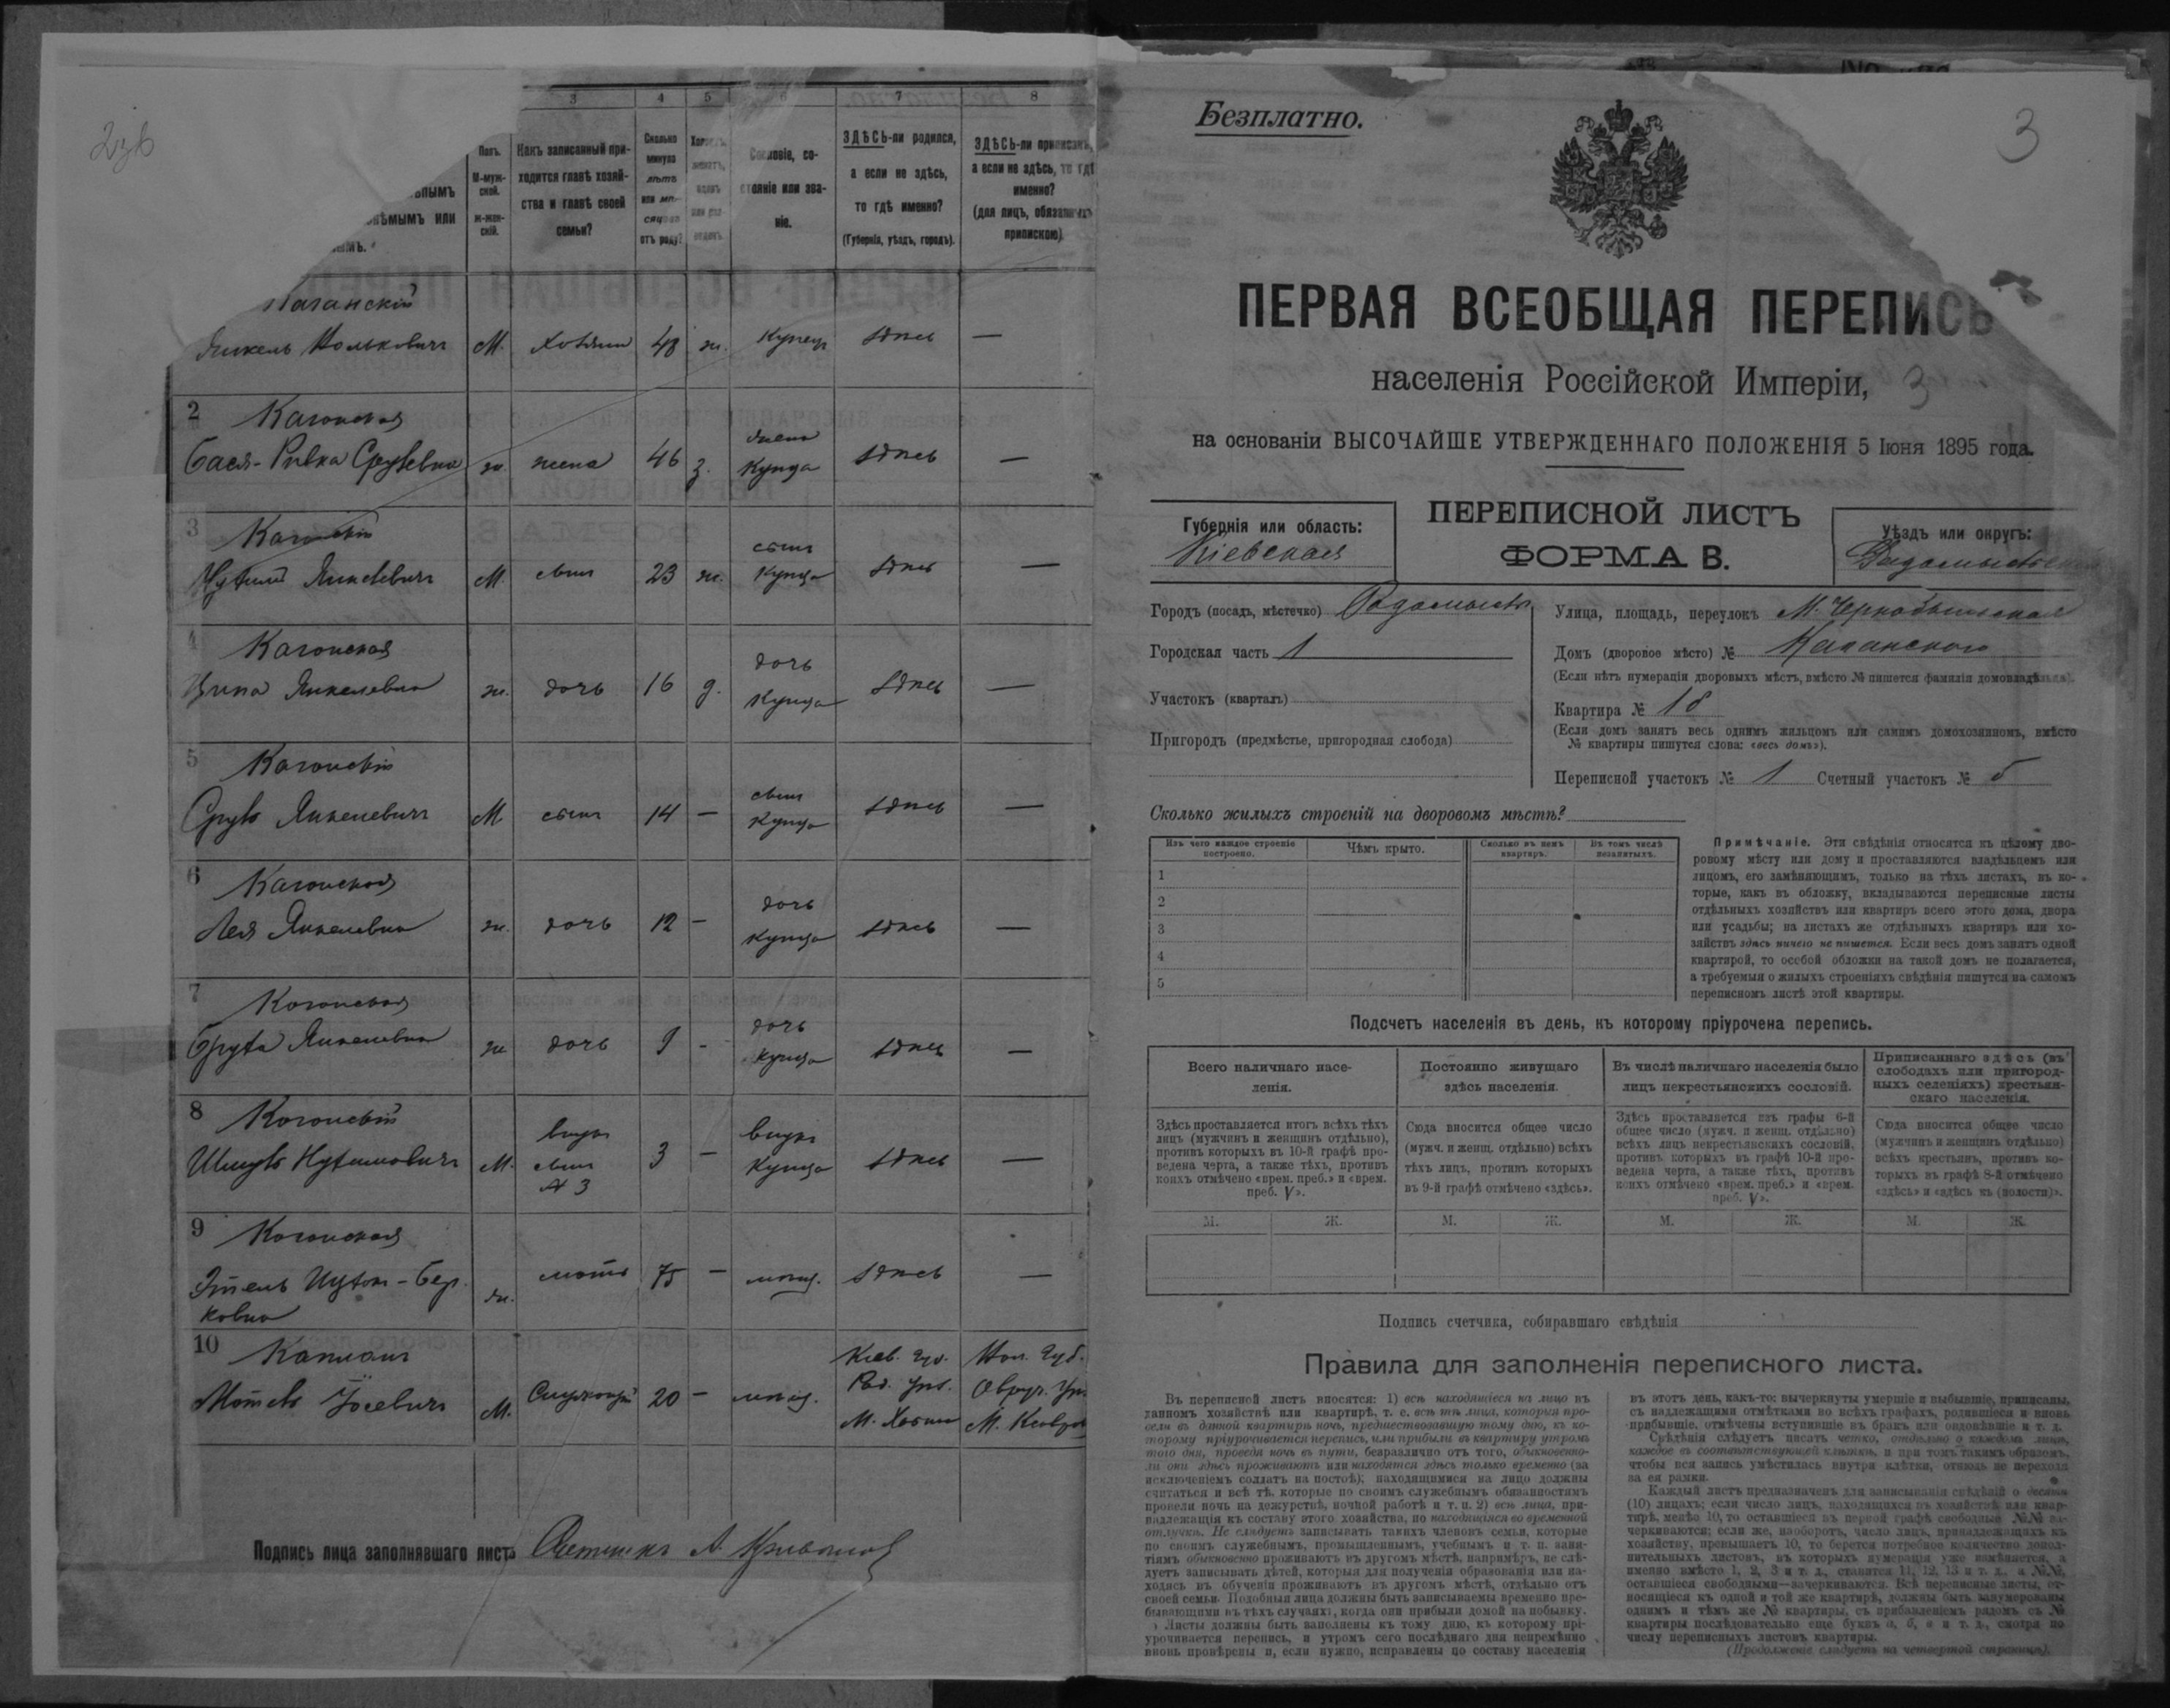 2зв
3 4 5 6 7 8
Полъ.
М-муж-
ской.
ж-жен-
скій.
Какъ записанный при-
ходится главѣ хозяй-
ства и главѣ своей
семьи?
Сколько
минуло
лѣтъ
или мѣ-
сяцевъ
отъ роду?
Сословіе, со-
стояніе или зва-
ніе.
ЗДѢСЬ-ли родился,
а если не здѣсь,
то гдѣ именно?
(Губернія, уѣздъ, городъ).
ЗДѢСЬ-ли приписанъ,
а если не здѣсь, то гдѣ
именно?
(для лицъ, обязанныхъ
припискою)
М. Хозяинъ 48 ж. Купецъ здѣсь —
2 Каганская
Бася-Ривка ж. жена 46 з. жена Купца здѣсь —
3 Каганскій
М. сынъ 23 ж. сынъ Купца здѣсь —
4 Каганская
Янкелевна ж. дочь 16 д. дочь Купца здѣсь —
5 Каганскій
Сруль Янкелевичъ М сынъ 14 — сынъ Купца здѣсь —
6 Каганская
Лея Янкелевна ж. дочь 12 — дочь Купца здѣсь —
7 Каганская
Янкелевна ж дочь 9 - дочь Купца здѣсь —
8 Каганскій
М. внукъ сынъ № 3 3 — внукъ Купца здѣсь —
9 Каганская
Этель ж. мать 75 — мѣщ. здѣсь —
10 Капланъ
М. Служащій 20 — мѣщ. Кіев. губ. Рад. уѣз.
Подпись лица заполнявшаго листъ
Безплатно.
3
ПЕРВАЯ ВСЕОБЩАЯ ПЕРЕПИСЬ
населенія Россійской Имперіи, 3
на основаніи ВЫСОЧАЙШЕ УТВЕРЖДЕННАГО ПОЛОЖЕНІЯ 5 Іюня 1895 года.
Губернія или область:
Кіевская
ПЕРЕПИСНОЙ ЛИСТЪ
ФОРМА В.
Уѣздъ или округъ:
Радомысльскій
Городъ (посадъ, мѣстечко) Радомысль
Городская часть 1
Участокъ (кварталъ)
Пригородъ (предмѣстье, пригородная слобода)
Улица, площадь, переулокъ М. Чернобыльская
Домъ (дворовое мѣсто) № Каганского
(Если нѣтъ нумераціи дворовыхъ мѣстъ, вмѣсто № пишется фамилія домовладѣльца).
Квартира № 1б
(Если домъ занятъ весь однимъ жильцомъ или самимъ домохозяиномъ, вмѣсто
№ квартиры пишутся слова: «весь домъ»).
Переписной участокъ № 1 Счетный участокъ № 5
Сколько жилыхъ строеній на дворовомъ мѣстѣ?
Изъ чего каждое строеніе
построено.
Чѣмъ крыто.
Сколько въ немъ
квартиръ.
Въ томъ числѣ
незанятыхъ.
1
2
3
4
5
Примѣчаніе. Эти свѣдѣнія относятся къ цѣлому дво-
ровому мѣсту или дому и проставляются владѣльцемъ или
лицомъ, его замѣняющимъ, только на тѣхъ листахъ, въ ко-
торые, какъ въ обложку, вкладываются переписные листы
отдѣльныхъ хозяйствъ или квартиръ всего этого дома, двора
или усадьбы; на листахъ же отдѣльныхъ квартиръ или хо-
зяйствъ здѣсь ничего не пишется. Если весь домъ занятъ одной
квартирой, то особой обложки на такой домъ не полагается,
а требуемыя о жилыхъ строеніяхъ свѣдѣнія пишутся на самомъ
переписномъ листѣ этой квартиры.
Подсчетъ населенія въ день, къ которому пріурочена перепись.
Всего наличнаго насе-
ленія.
Постоянно живущаго
здѣсь населенія.
Въ числѣ наличнаго населенія было
лицъ некрестьянскихъ сословій.
Приписаннаго здѣсь (въ
слободахъ или пригород-
ныхъ селеніяхъ) крестьян-
скаго населенія.
Здѣсь проставляется итогъ всѣхъ тѣхъ
лицъ (мужчинъ и женщинъ отдѣльно),
противъ которыхъ въ 10-й графѣ про-
ведена черта, а также тѣхъ, противъ
коихъ отмѣчено «врем. преб.» и «врем.
преб. V».
Сюда вносится общее число
(мужч. и женщ. отдѣльно) всѣхъ
тѣхъ лицъ, противъ которыхъ
въ 9-й графѣ отмѣчено «здѣсь».
Здѣсь проставляется изъ графы 6-й
общее число (мужч. и женщ. отдѣльно)
всѣхъ лицъ некрестьянскихъ сословій,
противъ которыхъ въ графѣ 10-й про-
ведена черта, а также тѣхъ, противъ
коихъ отмѣчено «врем. преб.» и «врем.
преб. V».
Сюда вносится общее число
(мужчинъ и женщинъ отдѣльно)
всѣхъ крестьянъ, противъ ко-
торыхъ въ графѣ 8-й отмѣчено
«здѣсь» и «здѣсь къ (волости)».
М. Ж. М. Ж. М. Ж. М. Ж.
Подпись счетчика, собиравшаго свѣдѣнія
Правила для заполненія переписного листа.
Въ переписной листъ вносятся: 1) всѣ находящіеся на лицо въ
данномъ хозяйствѣ или квартирѣ, т. е. всѣ тѣ лица, которыя про-
вели въ данной квартирѣ ночь, предшествовавшую тому дню, къ ко-
торому пріурочивается перепись, или прибыли въ квартиру утромъ
того дня, проведя ночь въ пути, безразлично отъ того, обыкновенно-
ли они здѣсь проживаютъ или находятся здѣсь только временно (за
исключеніемъ солдатъ на постоѣ); находящимися на лицо должны
считаться и всѣ тѣ, которые по своимъ служебнымъ обязанностямъ
провели ночь на дежурствѣ, ночной работѣ и т. п. 2) всѣ лица, при-
надлежащія къ составу этого хозяйства, но находящіяся во временной
отлучкѣ. Не слѣдуетъ записывать такихъ членовъ семьи, которые
по своимъ служебнымъ, промышленнымъ, учебнымъ и т. п. заня-
тіямъ обыкновенно проживаютъ въ другомъ мѣстѣ, напримѣръ, не слѣ-
дуетъ записывать дѣтей, которыя для полученія образованія или на-
ходясь въ обученіи проживаютъ въ другомъ мѣстѣ, отдѣльно отъ
своей семьи. Подобныя лица должны быть записываемы временно пре-
бывающими въ тѣхъ случаяхъ, когда они прибыли домой на побывку.
Листы должны быть заполнены къ тому дню, къ которому прі-
урочивается перепись, и утромъ сего послѣдняго дня непремѣнно
вновь провѣрены и, если нужно, исправлены по составу населенія
въ этотъ день, какъ-то: вычеркнуты умершіе и выбывшіе, приписаны,
съ надлежащими отмѣтками во всѣхъ графахъ, родившіеся и вновь
прибывшіе, отмѣчены вступившіе въ бракъ или овдовѣвшіе и т. д.
Свѣдѣнія слѣдуетъ писать четко, отдѣльно о каждомъ лицѣ,
каждое въ соотвѣтствующей клѣткѣ, и при томъ такимъ образомъ,
чтобы вся запись умѣстилась внутри клѣтки, отнюдь не переходя
за ея рамки.
Каждый листъ предназначенъ для записыванія свѣдѣній о десяти
(10) лицахъ; если число лицъ, находящихся въ хозяйствѣ или квар-
тирѣ, менѣе 10, то оставшіеся въ первой графѣ свободные №№ за-
черкиваются; если же, наоборотъ, число лицъ, принадлежащихъ къ
хозяйству, превышаетъ 10, то берется потребное количество допол-
нительныхъ листовъ, въ которыхъ нумерація уже измѣняется, а
именно вмѣсто 1, 2, 3 и т. д., ставится 11, 12, 13 и т. д., а №№,
оставшіеся свободными—зачеркиваются. Всѣ переписные листы, от-
носящіеся къ одной и той же квартирѣ, должны быть занумерованы
однимъ и тѣмъ же № квартиры, съ прибавленіемъ рядомъ съ №
квартиры послѣдовательно еще буквъ а, б, в и т. д., смотря по
числу переписныхъ листовъ квартиры.
(Продолженіе слѣдуетъ на четвертой страницѣ).